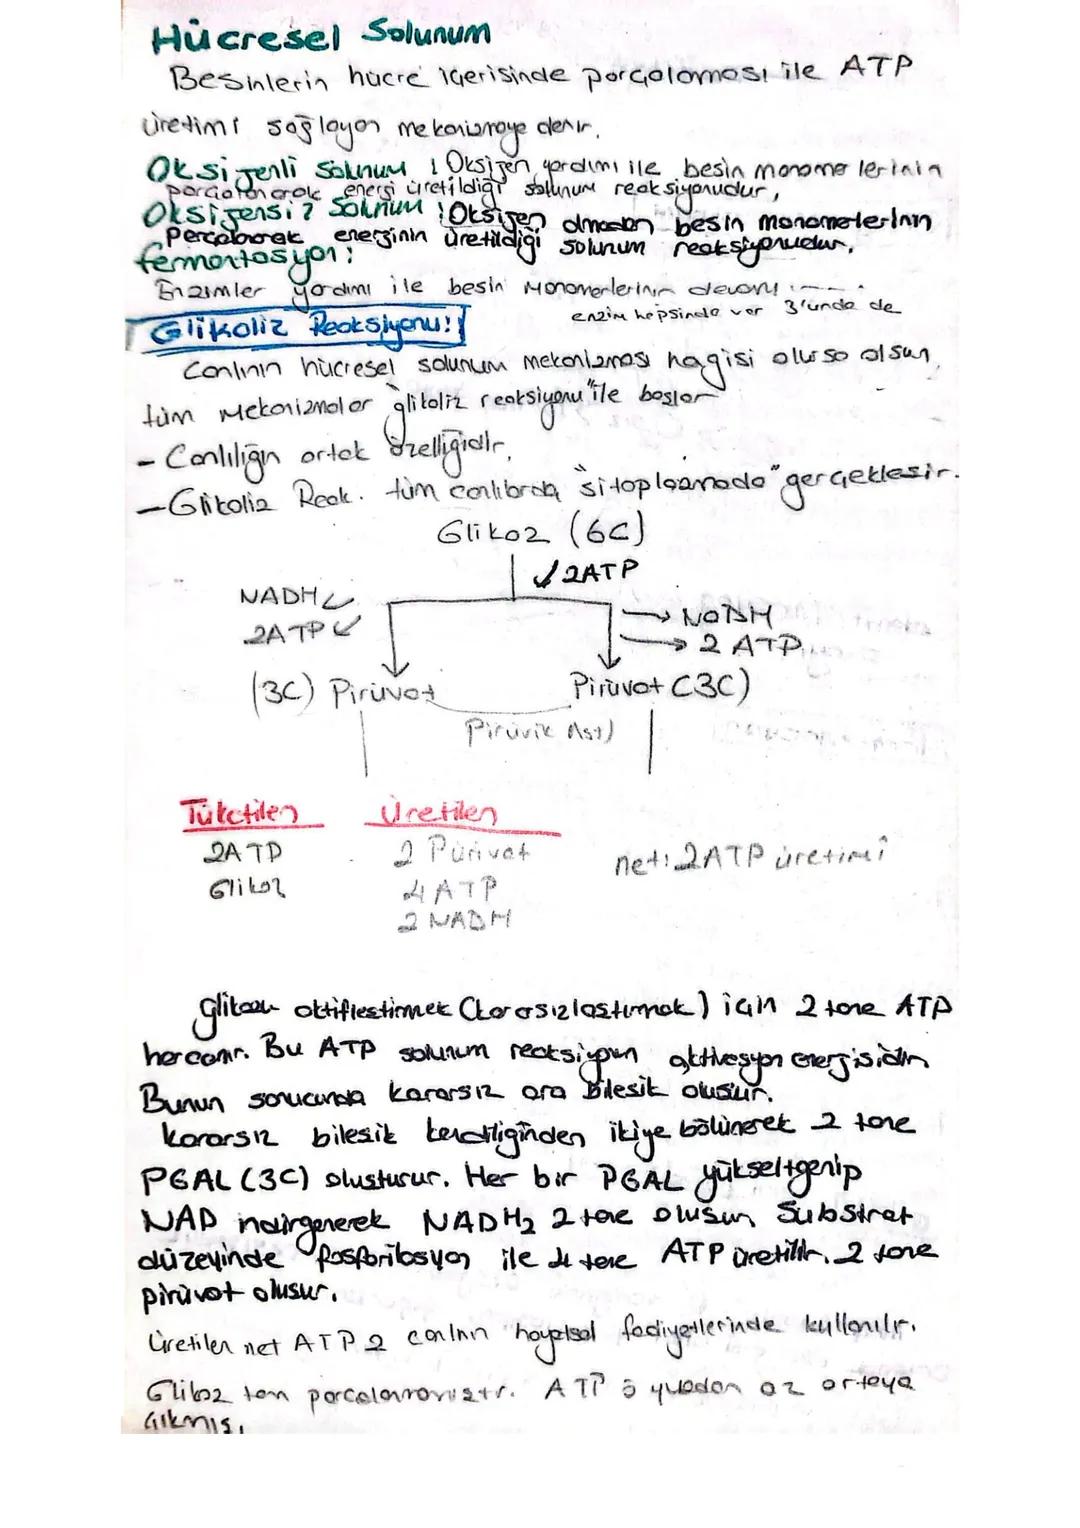 Hücresel Solunum
Besinlerin hücre içerisinde parçalanması ile ATP
üretimi sağlayan mekanizmaya denir.
Oksijenli Solunum : Oksijen yardımı ile besin monomerlerinin
parçalanarak energi üretildiği solunum reaksiyonudur,
Oksijensiz Solunum : Oksijen olmadan besin monomerlerinin
Parçalanarak enerjinin üretildiği solunum reaksiyonudur.
fermantasyon:
Enzimler yardımı ile besin Monomerlerinin devamı ....
enzim hepsinde var 3'ünde de
Glikoliz Reaksiyonu:
Canlının hücresel solunum mekanizması hagisi olursa olsun,
tüm Mekanizmalar "glikoliz reaksiyonu" ile başlar
- Canlılığın ortak özelliğidir,
- Glikoliz Reak. tüm canlılarda "sitoplazmada" gerçekleşir.
Glikoz (6C)
2ATP
NADH
NADH
2ATP
2 ATP
(3C) Pirüvat
Pirüvat (3C)
Pirüvik Asit
Tüketilen Üretilen
2ATP 2 Pürivat net: 2ATP üretimi
Glikoz 4ATP
2 NADH
glikozu aktifleştirmek (kararsızlaştırmak) için 2 tane ATP
harcanır. Bu ATP solunum reaksiyonun aktivasyon energisidir
Bunun sonucunda kararsız ara bileşik oluşur.
kararsız bileşik kendiliğinden ikiye bölünerek 2 tane
PGAL (3C) oluşturur. Her bir PGAL yükseltgenip
NAD indirgenerek NADH₂ 2 tane oluşur, Substrat
düzeyinde fosforilasyon ile 4 tane ATP üretilir. 2 tane
pirüvat oluşur.
Üretilen net ATP 2 canlının hayatsal faaliyetlerinde kullanılır.
Glikoz tam parçalanmamıştır. ATP o yüzden az ortaya
çıkmış.